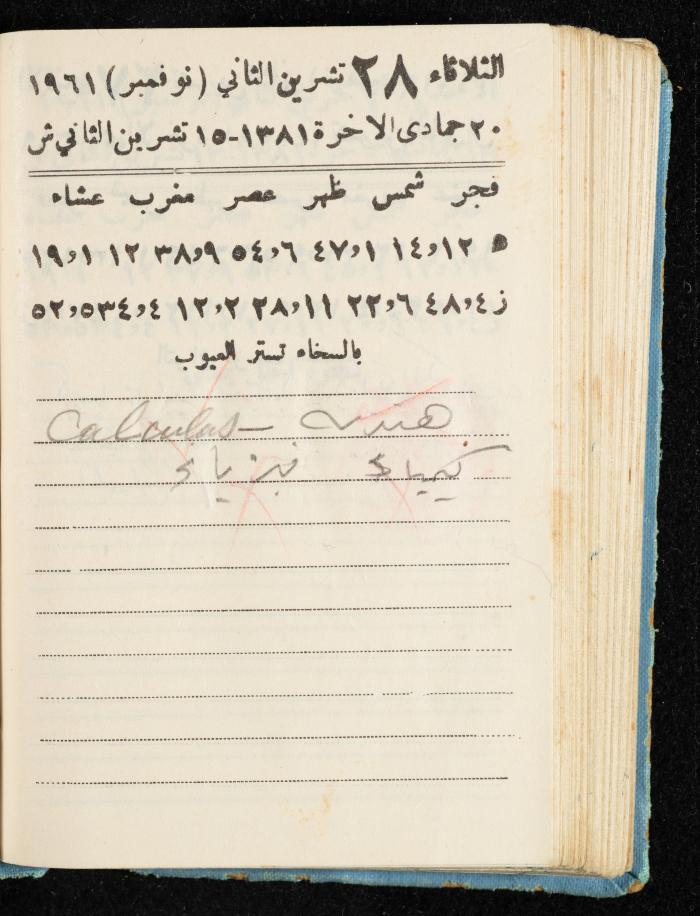 الثلاثاء ٢٨ تشرين الثاني (نوفمبر) ١٩٦١
٢٠ جمادى الاخرة ١٣٨١-١٥ تشرين الثاني ش
فجر شمس ظهر عصر مغرب عشاء
١٢،٥ ١٤،١ ٤٧،٦ ٥٤،٩ ٣٨،١٢ ١،١٩
ز ٤،٤٨ ٦،٢٢ ١١،٢٨ ٢،١٢ ٤،٣٤ ٥،٥٢
بالسخاء تستر العيوب
هندسة - Calculus
كيمياء فيزياء